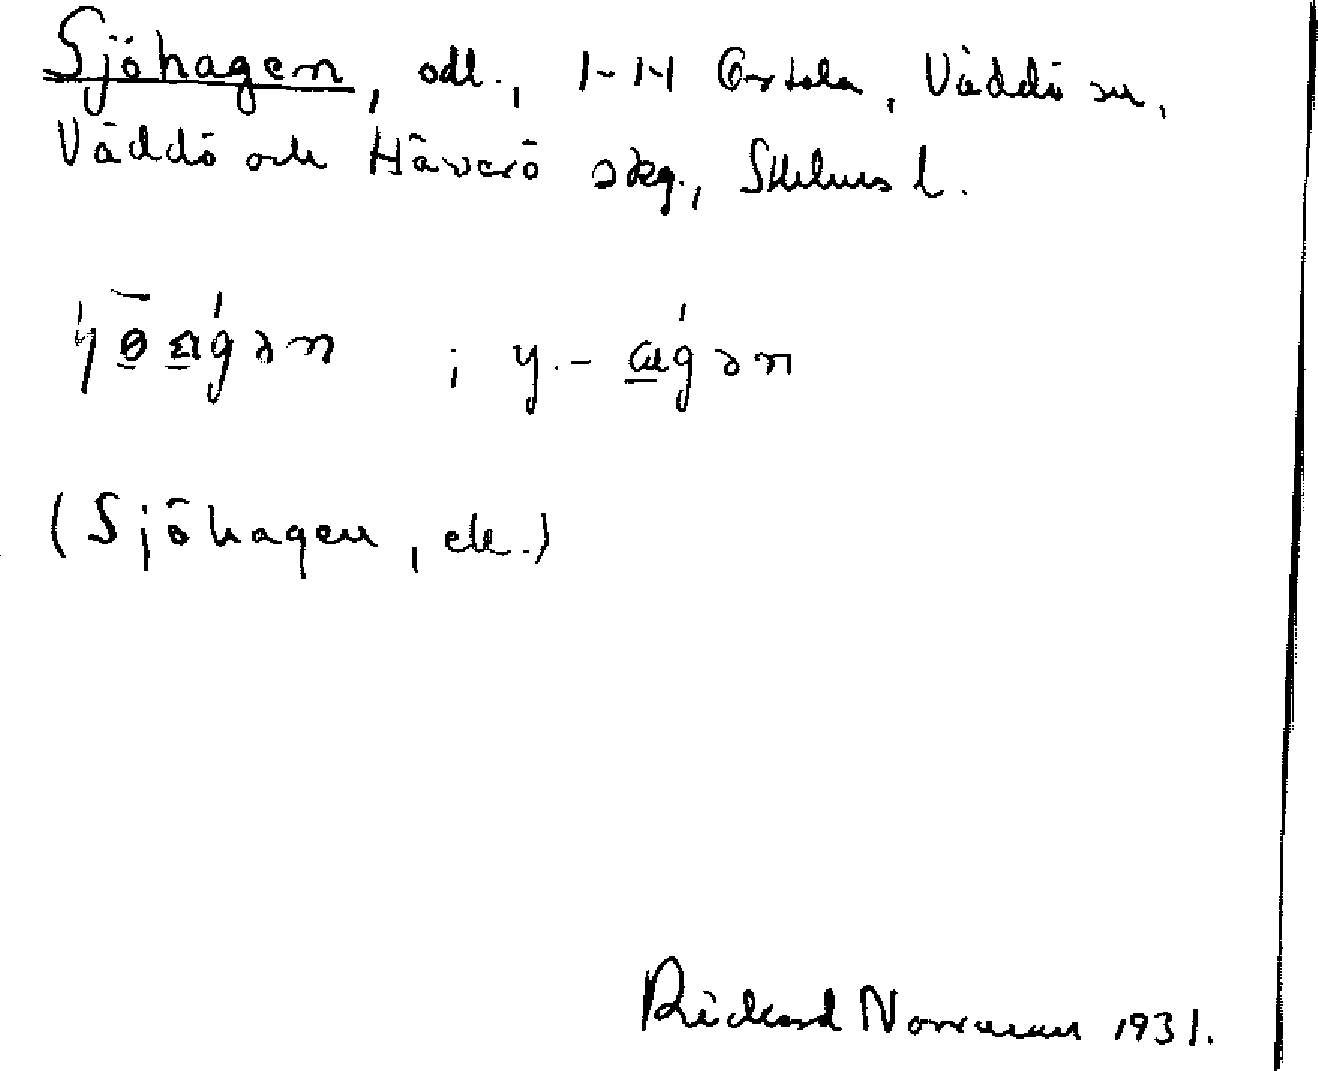 Sjöhagen, odl., 1-14 Ortala, Väddö sn,
Väddö och Häverö skg., Sthlms l.
(Sjöhagen, ek.)
Rickard Norrman 1931.